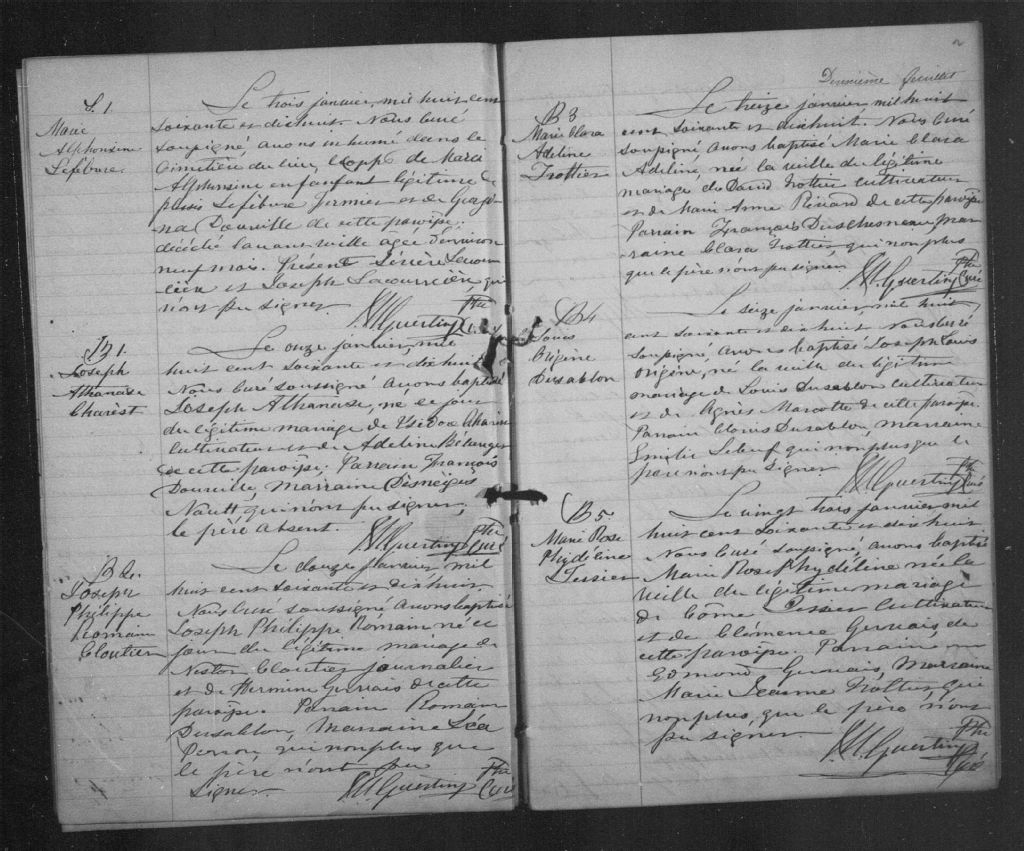 S. 1
Marie
Alphonsine
Lefebvre
Le trois janvier, mil huit cent
soixante et dixhuit. Nous Curé
soussigné avons inhumé dans le
Cimetière du lieu, le corps de Marie
Alphonsine enfant légitime de
Lefebvre fermier et de Georgi-
na Douville de cette paroisse
décédé l'avant veille âgée d'environ
neuf mois. Présent Lacour-
cière et Joseph Lacourcière qui
n'ont pu signer.
Ptre
Guertin Curé
B 1.
Joseph
Athanase
Charèst
Le onze janvier, mil
huit cent soixante et dixhuit
Nous Curé soussigné avons baptisé
Joseph Athanase, né ce jour
du légitime mariage de Isidore Charèst
Cultivateur et de Adeline Bélanger
de cette paroisse. Parrain François
Douville, Marraine Desneiges
Nault qui n'ont pu signer,
le père absent.
Ptre
Guertin Curé
B 2.
Joseph
Philippe
Romain
Cloutier
Le douze janvier mil
huit cent soixante et dixhuit
Nous Curé soussigné avons baptisé
Joseph Philippe Romain né ce
jour du légitime mariage de
Nestor Cloutier journalier
et de Hermine Gervais de cette
paroisse. Parrain Romain
Dusablon, Marraine Léa
Perron qui non plus que
le père n'ont pu
signer.
Ptre
Guertin Curé
2
Deuxième feuillet
B 3
Marie Clara
Adeline
Trottier
Le treize janvier mil huit
cent soixante et dixhuit. Nous Curé
soussigné avons baptisé Marie Clara
Adeline, née la veille du légitime
mariage de David Trottier cultivateur
et de Marie Anne de cette paroisse
Parrain François Duschesneau, Mar-
raine Clara Trottier qui non plus
que le père n'ont pu signer.
Ptre
Guertin Curé
B 4
Louis
Origène
Dusablon
Le seize janvier, mil huit
cent soixante et dixhuit Nous Curé
soussigné, avons baptisé Joseph Louis
Origène, né la veille du légitime
mariage de Louis Dusablon Cultivateur
et de Agnès Marcotte de cette paroisse.
Parrain Clovis Dusablon, marraine
Emilie Lebeuf qui non plus que le
père n'ont pu signer
Ptre
Guertin Curé
B 5.
Marie Rose
Phydéline
Tessier
Le vingt trois janvier mil
huit cent soixante et dixhuit.
Nous Curé soussigné, avons baptisé
Marie Rose Phydéline née la
veille du légitime mariage
de Côme Tessier Cultivateur
et de Clémence Gervais, de
cette paroisse. Parrain
Edmond Gervais, Marraine
Marie Jeanne Trottier, qui
non plus, que le père n'ont
pu signer.
Ptre
Guertin Curé